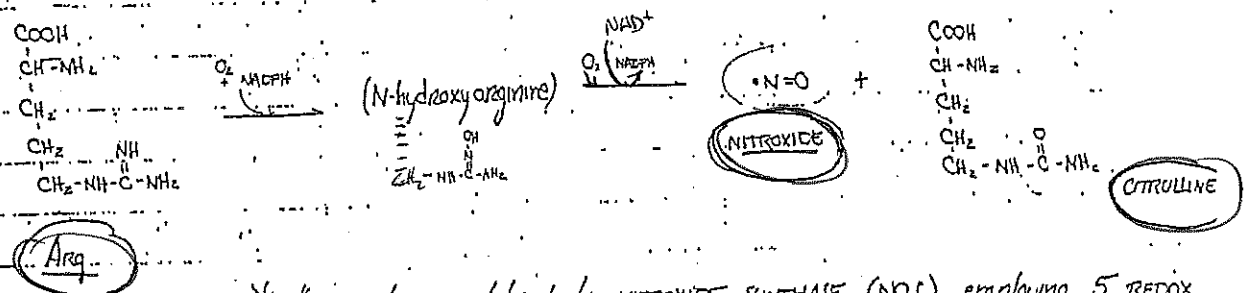 COOH
CH-NH2
CH2
CH2 NH
CH2-NH-C-NH2
Arg
O2
+ NADPH
(N-hydroxyarginine)
OH
N
CH2-NH-C-NH2
NAD+
O2 NADPH
•N=O
NITROXIDE
+
COOH
CH-NH2
CH2
CH2 O
CH2-NH-C-NH2
CITRULLINE
by NITROXIDE SYNTHASE (NOS) employing 5 REDOX